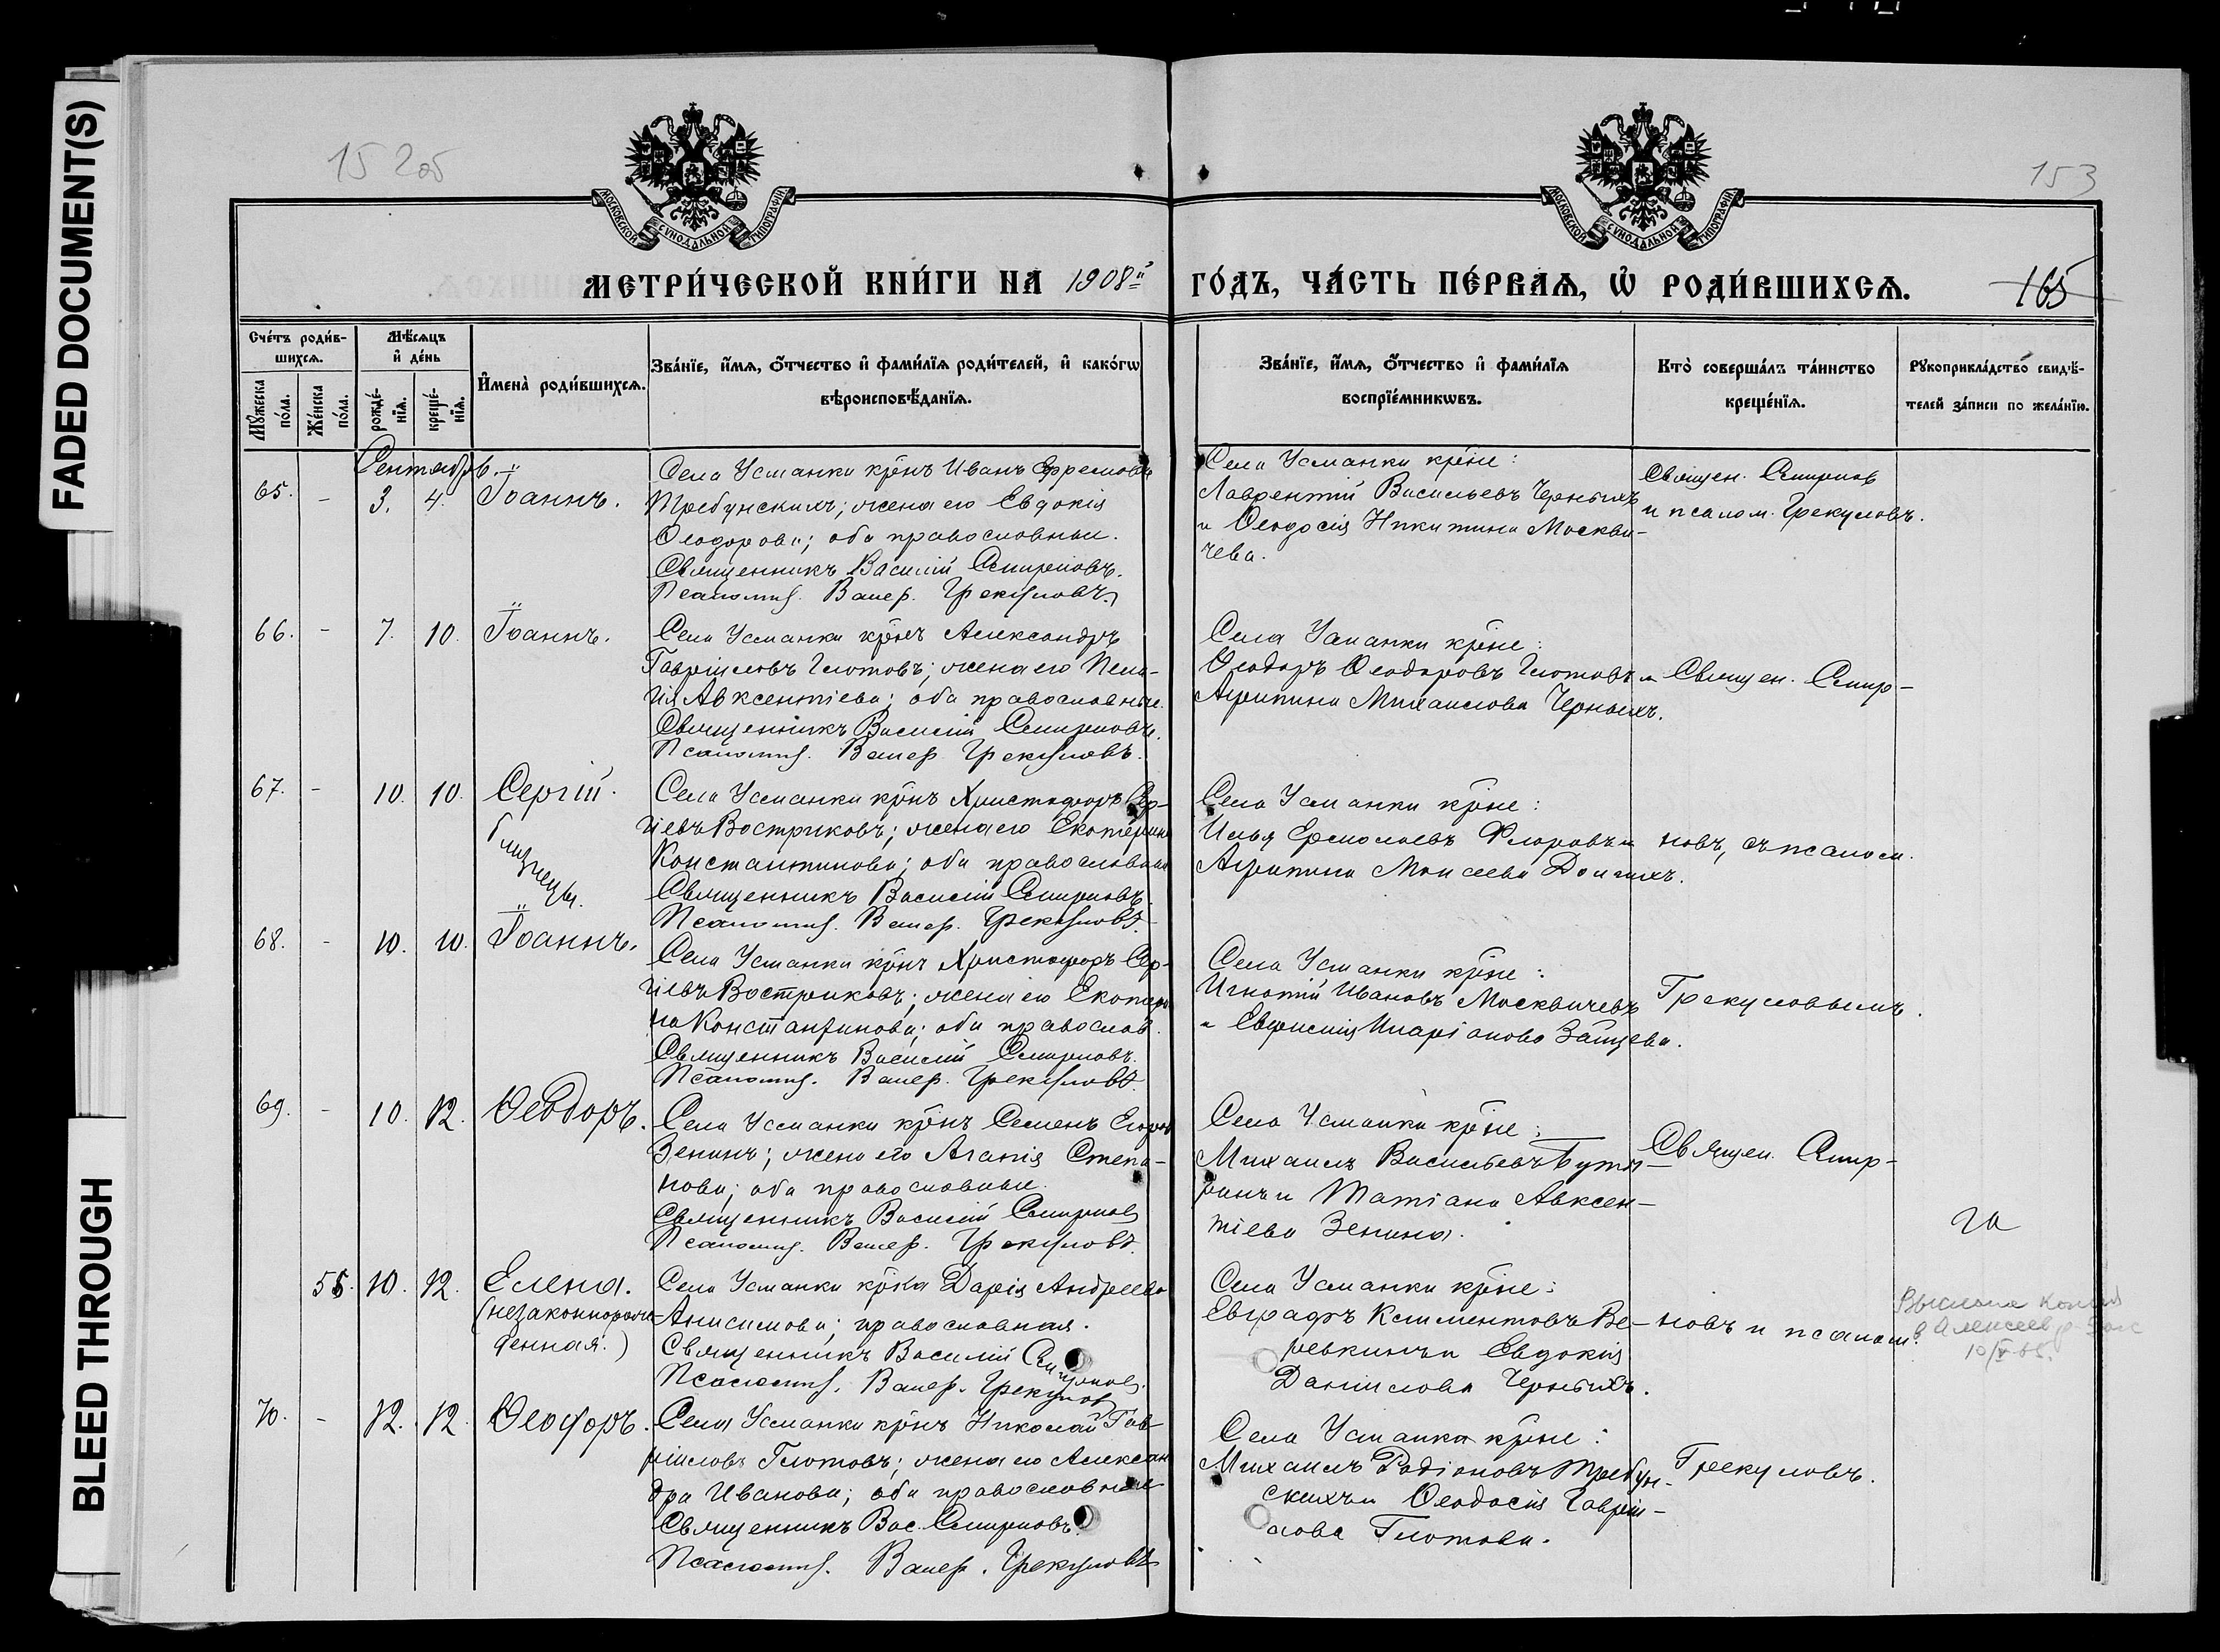 FADED DOCUMENT(S)
BLEED THROUGH
15 205
153
МОСКОВСКОЙ СѴНОДАЛЬНОЙ ТИПОГРАФІИ
МОСКОВСКОЙ СѴНОДАЛЬНОЙ ТИПОГРАФІИ
МЕТРИ́ЧЕСКОЙ КНИ́ГИ НА 1908й ГО́ДЪ, ЧА́СТЬ ПЕ́РВАѦ, Ѽ РОДИ́ВШИХСѦ.
165
Сче́тъ роди́в-
шихсѧ.
Мѣ́сѧцъ
и҆ де́нь
Мꙋ́жеска по́ла.
Же́нска по́ла.
рожде́-
нїѧ.
креще́-
нїѧ.
И҆мена̀ роди́вшихсѧ.
Зва́нїе, и҆́мѧ, ѻ҆́тчество и҆ фами́лїѧ роди́телей, и҆ како́гѡ
вѣроисповѣ́данїѧ.
Зва́нїе, и҆́мѧ, ѻ҆́тчество и҆ фами́лїѧ
воспрїе́мникѡвъ.
Кто̀ соверша́лъ та́инство
креще́нїѧ.
Рꙋкоприкла́дство свидѣ́-
телей за́писи по жела́нїю.
Сентябрь.
65. - 3. 4. Іоаннъ.
Села Усманки крⷭ҇нъ Иванъ Ефремовъ
Требунскихъ; жена его Евдокія
Ѳеодорова; оба православные.
Священникъ Василій Смирновъ.
Псаломщ. Валер. Грекуловъ.
Села Усманки крⷭ҇не:
Лаврентій Васильевъ Черныхъ
и Ѳеодосія Никитина Москви-
чева.
Священ. Смирнов
и псалом. Грекуловъ.
66. - 7. 10. Іоаннъ.
Села Усманки крⷭ҇нъ Александръ
Гавріиловъ Глотовъ; жена его Пела-
гія Авксентіева; оба православные.
Священникъ Василій Смирновъ.
Псаломщ. Валер. Грекуловъ.
Села Усманки крⷭ҇не:
Ѳеодоръ Ѳеодоровъ Глотовъ и
Агрипина Михаилова Черныхъ.
Священ. Смир-
67. - 10. 10. Сергій.
близнецы.
Села Усманки крⷭ҇нъ Христофоръ Сер-
гіевъ Востриковъ; жена его Екатерина
Константинова; оба православные
Священникъ Василій Смирновъ.
Псаломщ. Валер. Грекуловъ.
Села Усманки крⷭ҇не:
Илья Ермолаевъ Флоровъ и
Агрипина Моисеева Долгихъ.
новъ, съ псалом.
68. - 10. 10. Іоаннъ.
Села Усманки крⷭ҇нъ Христофоръ Сер-
гіевъ Востриковъ; жена его Екатери
на Константинова; оба православ.
Священникъ Василій Смирновъ.
Псаломщ. Валер. Грекуловъ.
Села Усманки крⷭ҇не:
Игнатій Ивановъ Москвичевъ
и Евфимія Иларіонова Зайцева.
Грекуловымъ.
69. - 10. 12. Ѳеодоръ.
Села Усманки крⷭ҇нъ Семенъ Егоров
Зенинъ; жена его Агапія Степа-
нова; оба православные.
Священникъ Василій Смирновъ
Псаломщ. Валер. Грекуловъ.
Села Усманки крⷭ҇не:
Михаилъ Васильевъ Буты-
ринъ и Татіана Авксен-
тіева Зенина.
Священ. Смир-
55. 10. 12. Елена.
(незаконнорож-
денная.)
Села Усманки крⷭ҇ка Дарія Андреева
Анисимова; православная.
Священникъ Василій Смирновъ.
Псаломщ. Валер. Грекулов
Села Усманки крⷭ҇не:
Евграфъ Климентовъ Ве-
ревкинъ и Евдокія
Даніилова Черныхъ.
новъ и псалом.
70. - 12. 12. Ѳеодоръ.
Села Усманки крⷭ҇нъ Николай Гав
ріиловъ Глотовъ; жена его Алексан
дра Иванова; оба православные
Священникъ Вас. Смирновъ.
Псаломщ. Валер. Грекуловъ
Села Усманки крⷭ҇не:
Михаилъ Родіоновъ Требун-
скихъ и Ѳеодосія Гаврі-
лова Глотова.
Грекуловъ.